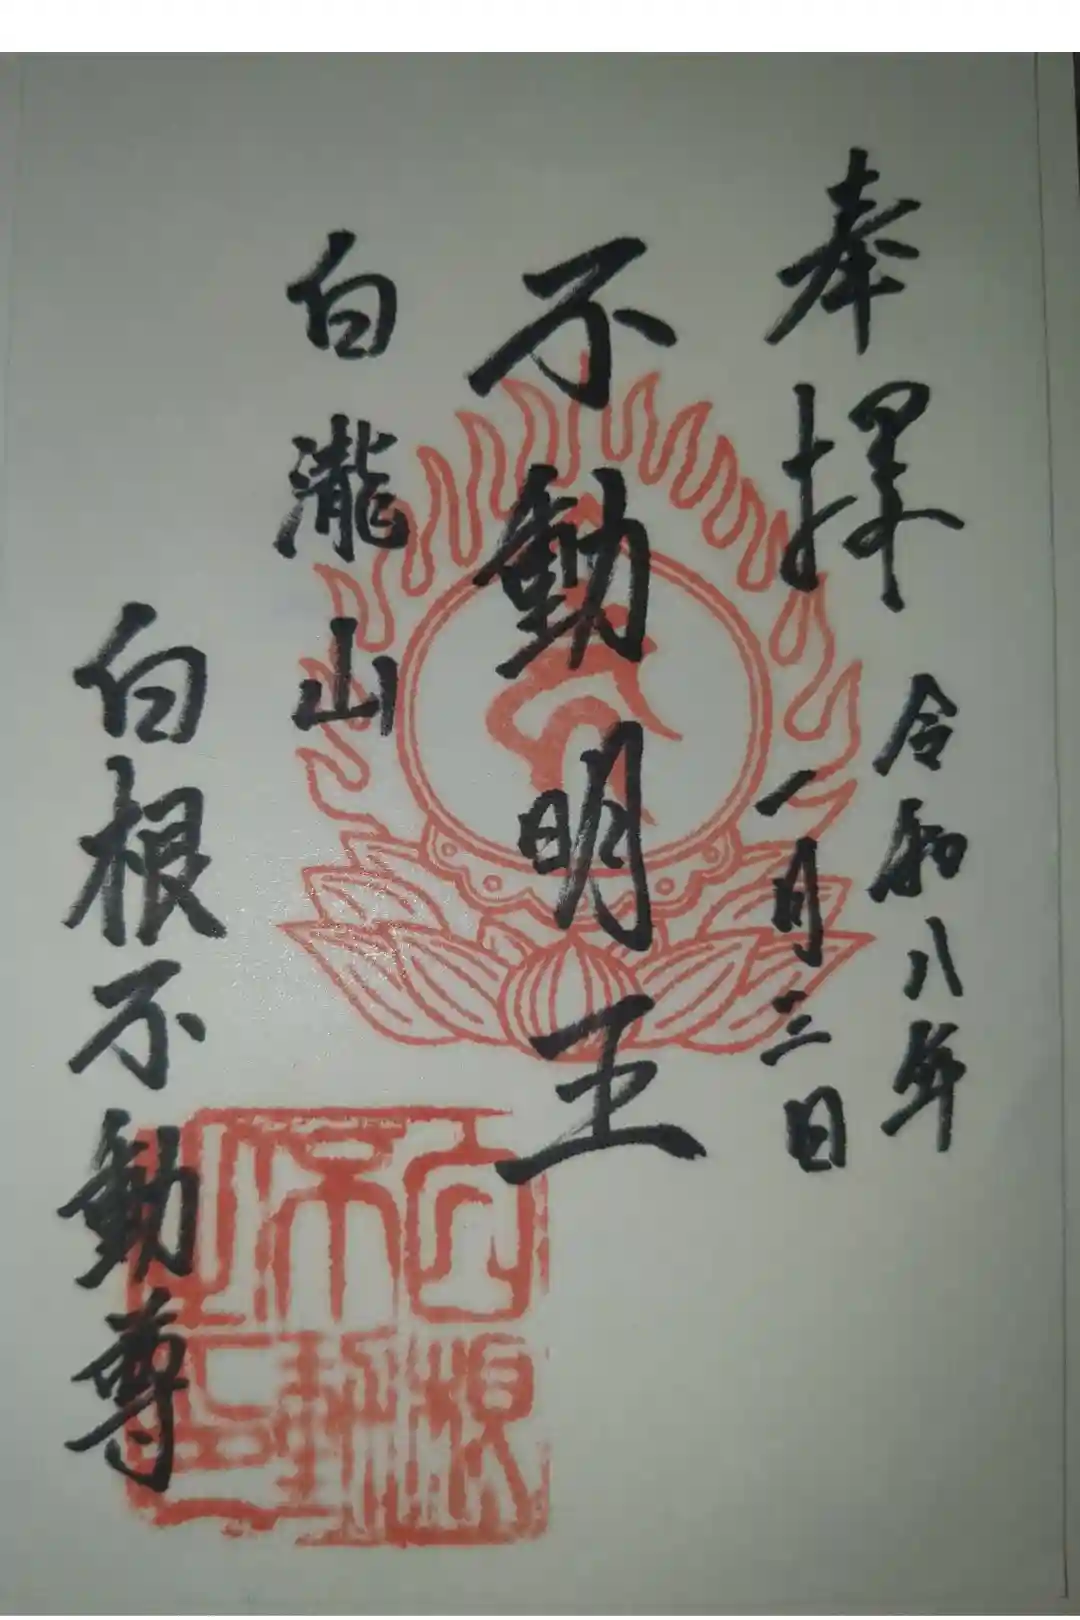 奉拝
令和八年
一月三日
不動明王
白瀧山
白根不動尊
白根
不動